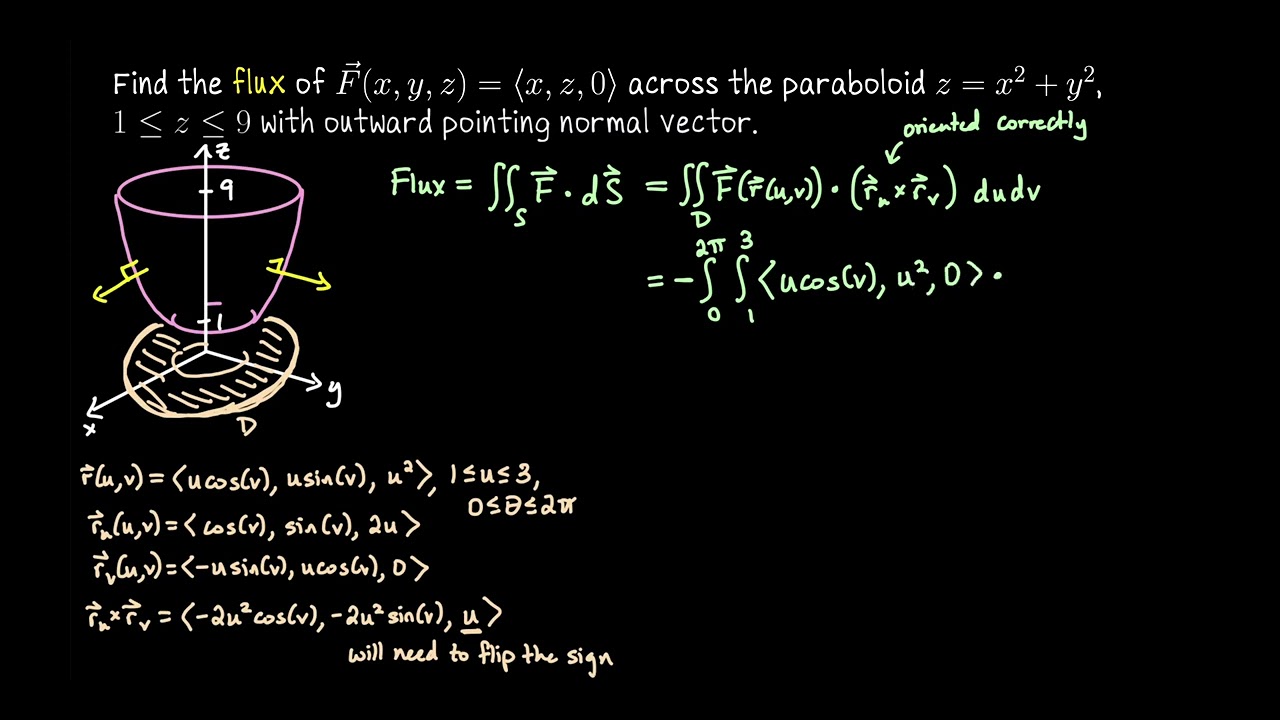 Find the flux of F⃗(x, y, z) = ⟨x, z, 0⟩ across the paraboloid z = x² + y²,
1 ≤ z ≤ 9 with outward pointing normal vector.
oriented correctly
Flux = ∬_S F⃗ · dS⃗ = ∬_D F⃗(r⃗(u,v)) · (r⃗_u × r⃗_v) du dv
= - ∫_0^{2π} ∫_1^3 ⟨u cos(v), u², 0⟩ ·
z
9
1
x
y
D
r⃗(u,v) = ⟨u cos(v), u sin(v), u²⟩, 1 ≤ u ≤ 3,
0 ≤ θ ≤ 2π
r⃗_u(u,v) = ⟨cos(v), sin(v), 2u⟩
r⃗_v(u,v) = ⟨-u sin(v), u cos(v), 0⟩
r⃗_u × r⃗_v = ⟨-2u² cos(v), -2u² sin(v), u⟩
will need to flip the sign